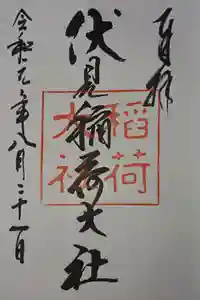 奉拝
伏見稲荷大社
稲荷
大社
令和元年八月三十一日